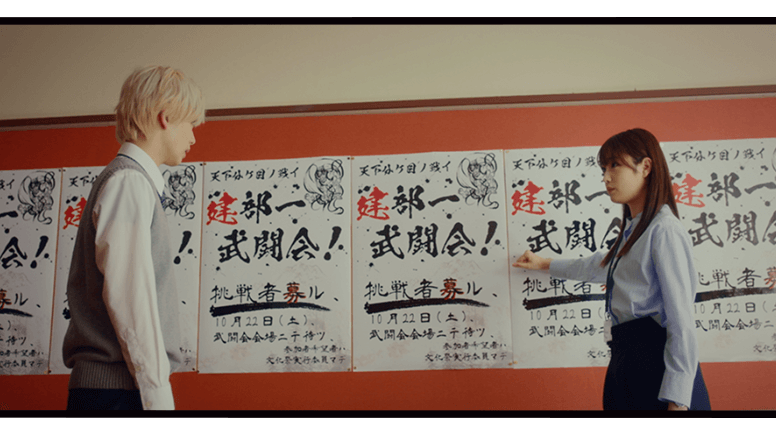 戦イ
一
会!
募ル、
(土)、
天下
建
天下分ケ目ノ戦イ
建部一
武闘会!
挑戦者募ル、
10月22日(土)、
武闘会会場ニテ待ツ、
文化祭実行委員マデ
天下分ケ目ノ戦イ
建部一
武闘会!
挑戦者募ル、
10月22日(土)、
武闘会会場ニテ待ツ、
文化祭実行委員マデ
天下分ケ目ノ
建部一
武闘会
挑戦者
10月22日
武闘会会場
目ノ戦イ
建部一
闘会!
戦者募ル、
22日(土)、